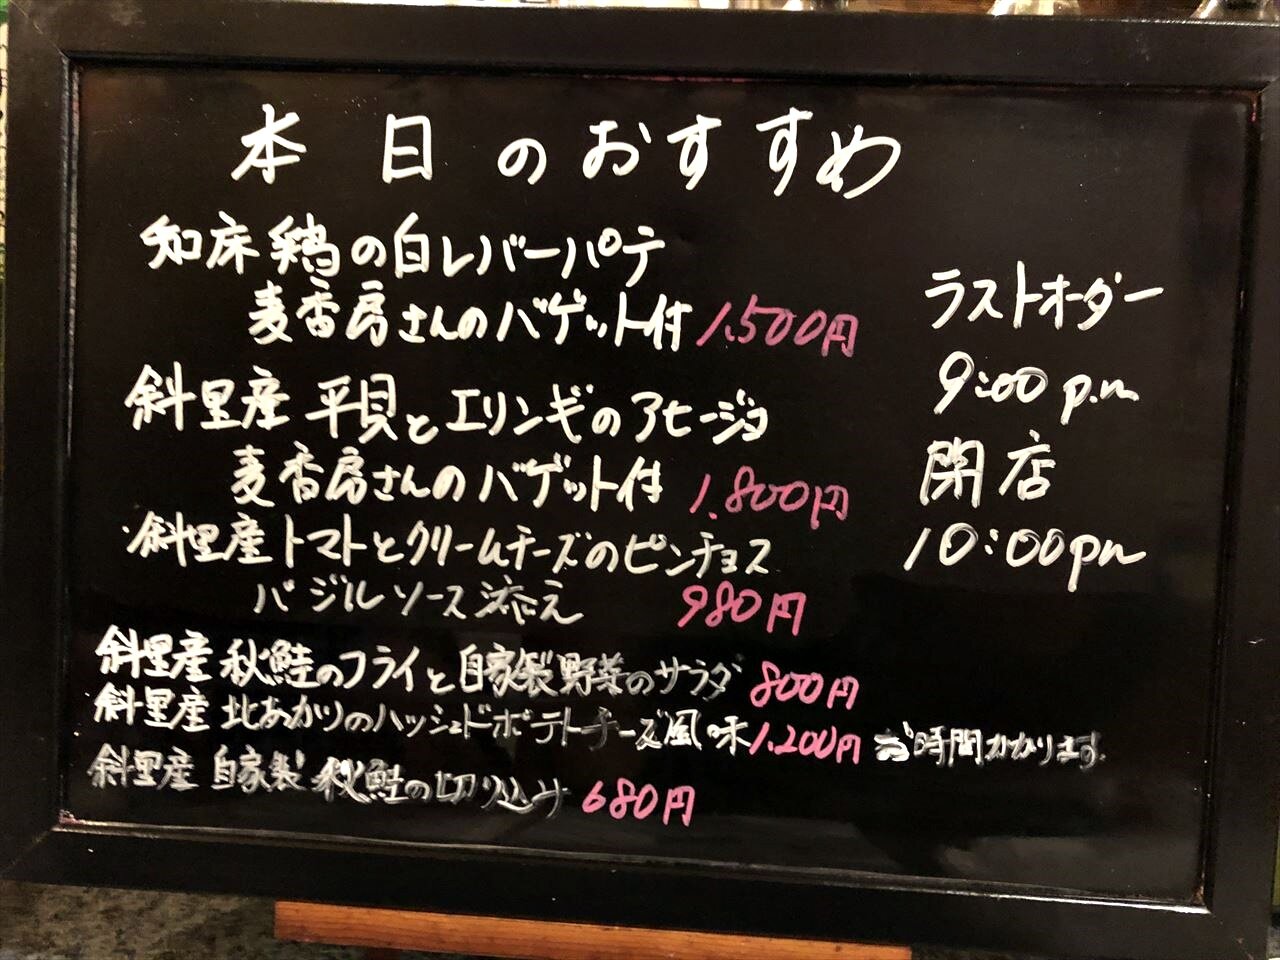 本日のおすすめ
知床鶏の白レバーパテ
麦香房さんのバゲット付 1,500円
斜里産 平貝とエリンギのアヒージョ
麦香房さんのバゲット付 1,800円
・斜里産トマトとクリームチーズのピンチョス
バジルソース添え 980円
斜里産 秋鮭のフライと自家製野菜のサラダ 800円
斜里産 北あかりのハッシュドポテトチーズ風味 1,200円 お時間かかります
斜里産 自家製 秋鮭の切り込み 680円
ラストオーダー
9:00 p.m
閉店
10:00pm